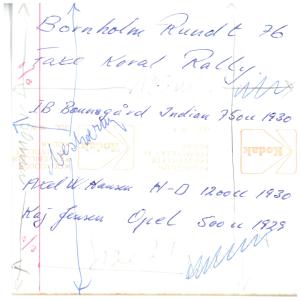 Bornholm Rundt 76
Faxe Koral Rally
IB Baunsgård Indian 750cc 1930
Axel W. Hansen H-D 1200cc 1930
Kaj Jensen Opel 500cc 1929
Kodak